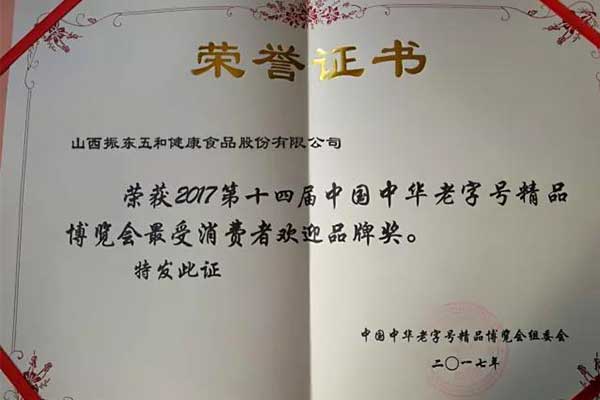 荣誉证书
山西振东五和健康食品股份有限公司
荣获2017第十四届中国中华老字号精品
博览会最受消费者欢迎品牌奖。
特发此证
中国中华老字号精品博览会组委会
二〇一七年